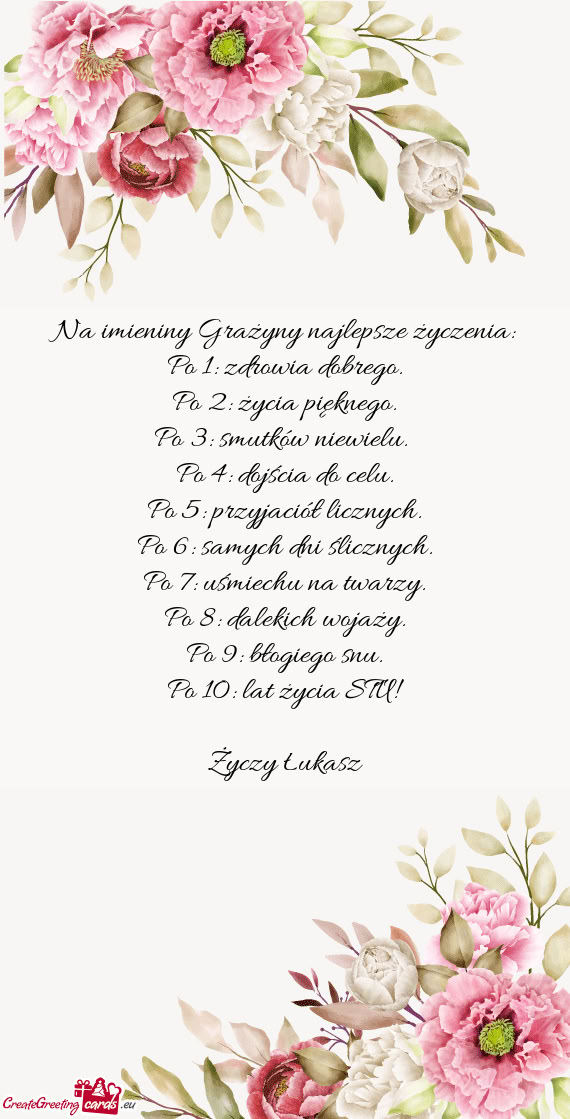 Na imieniny Grażyny najlepsze życzenia:
Po 1: zdrowia dobrego.
Po 2: życia pięknego.
Po 3: smutków niewielu.
Po 4: dojścia do celu.
Po 5: przyjaciół licznych.
Po 6: samych dni ślicznych.
Po 7: uśmiechu na twarzy.
Po 8: dalekich wojaży.
Po 9: błogiego snu.
Po 10: lat życia STU!
Życzy Łukasz
CreateGreeting cards .eu